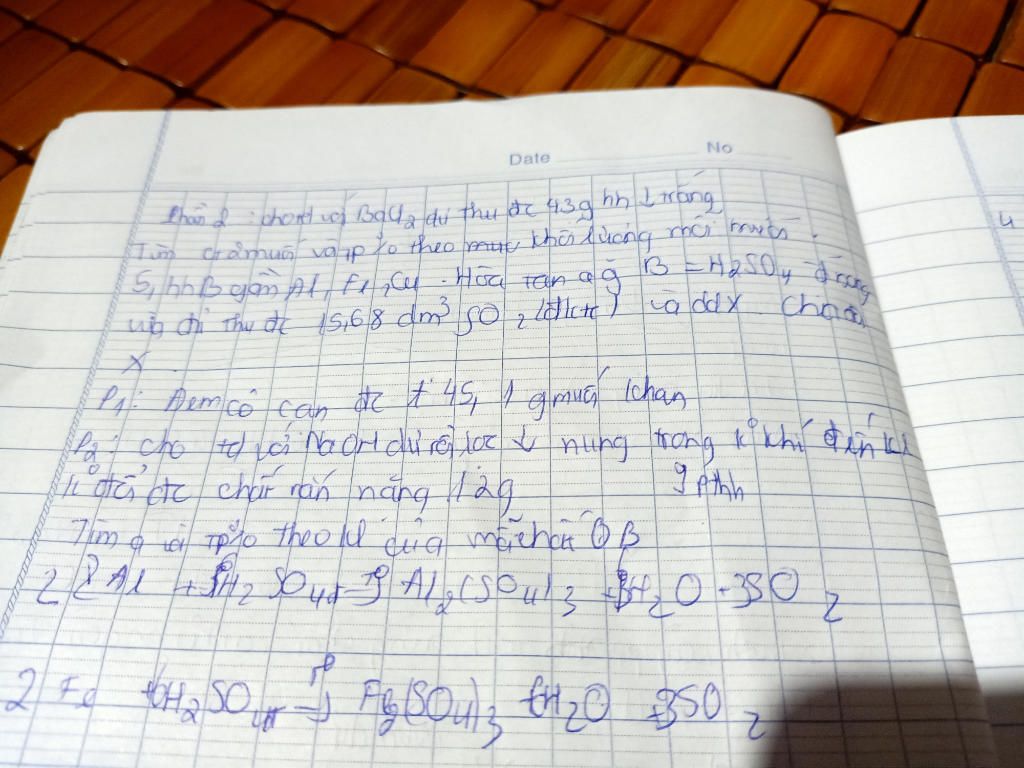 Date No
Phần 2: cho td với BaCl2 dư thu đc 43g hh ↓ trắng
Tìm muối và tp % theo khối lượng mỗi muối.
5, hh B gồm Al, Fe, Cu. Hòa tan a g B = H2SO4 đ nóng
vừa đủ thu đc 15,68 dm3 SO2 (đktc) và ddX. Chia đôi
X.
P1: Đem cô cạn đc 45,1 g muối khan
P2: cho td với NaOH dư rồi lọc ↓ nung trong k khí đến kl
k đổi đc chất rắn nặng 12g
9 Pthh
Tìm a và tp % theo kl của mỗi chất B
2Al + 6H2SO4đ → Al2(SO4)3 + 6H2O + 3SO2
2Fe + 6H2SO4đ → Fe2(SO4)3 + 6H2O + 3SO2